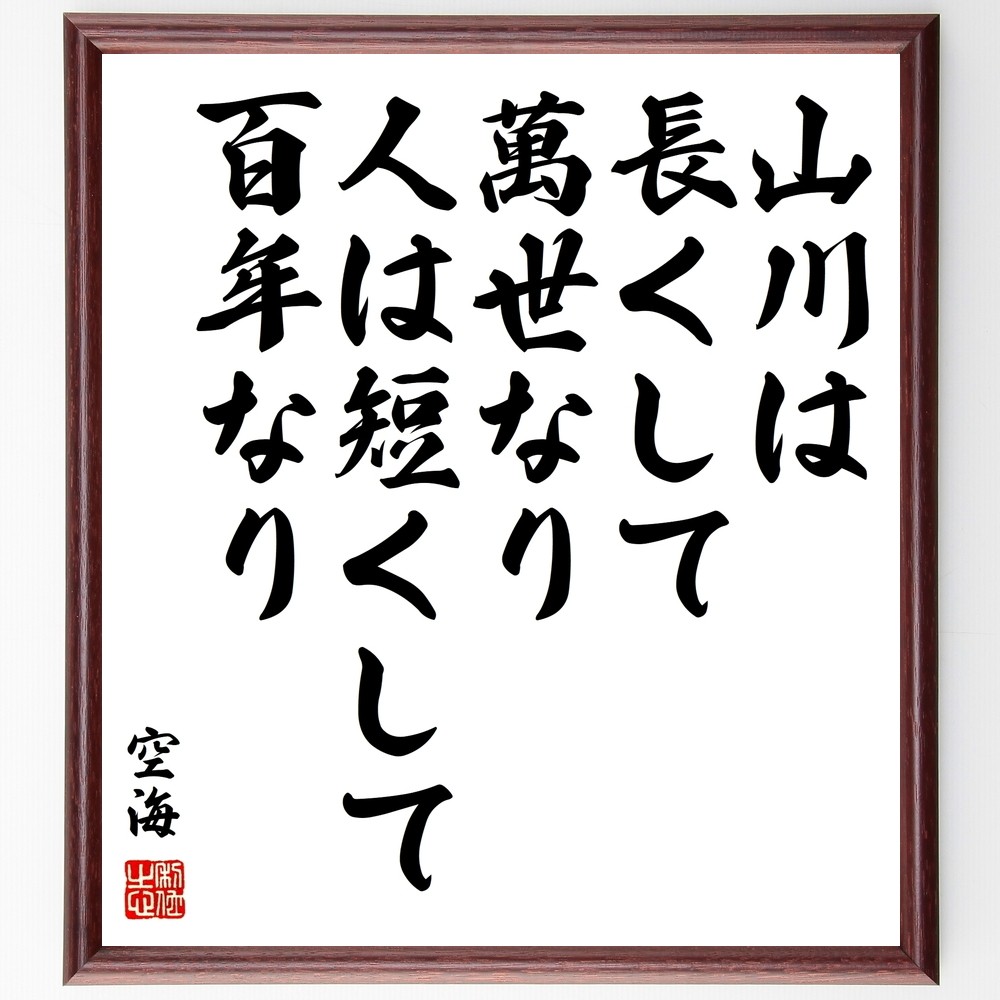 山川は
長くして
萬世なり
人は短くして
百年なり
空海